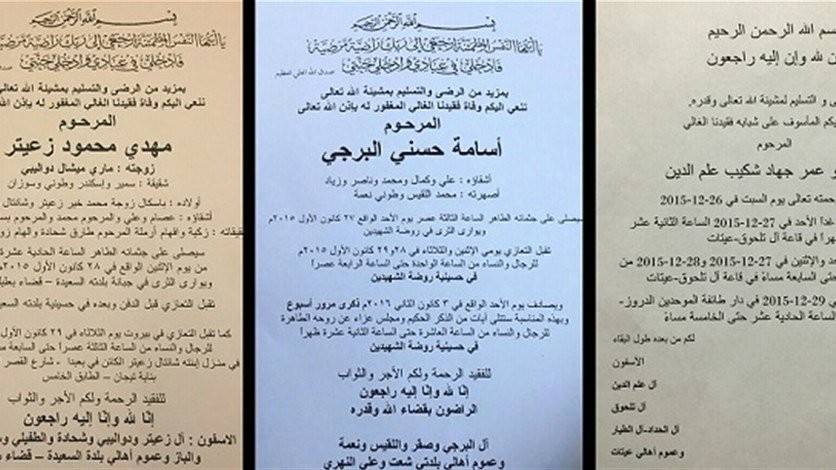 بسم الله الرحمن الرحيم
يا أيتها النفس المطمئنة ارجعي إلى ربك راضية مرضية
فادخلي في عبادي وادخلي جنتي
بمزيد من الرضى والتسليم بمشيئة الله تعالى
ننعي اليكم وفاة فقيدنا الغالي المغفور له بإذن الله
المرحوم
مهدي محمود زعيتر
زوجته : ماري ميشال دواليبي
شقيقة : سمير وإسكندر وطوني وسوزان
أولاده : باسكال زوجة محمد خير زعيتر وشانتال
أشقاؤه : عصام وعلي والمرحوم محمد والمرحوم
زكية وافهام أرملة المرحوم طارق شحادة والهام
سيصلى على جثمانه الطاهر الساعة الحادية عشرة
من يوم الإثنين الواقع في ٢٨ كانون الأول ٢٠١٥
ويوارى الثرى في جبانة بلدته السعيدة – قضاء
تقبل التعازي قبل الدفن وبعده في حسينية بلدته
كما تقبل التعازي في بيروت يوم الثلاثاء في ٢٩ كانون
للرجال والنساء من الساعة الثالثة عصراً حتى السابعة
في منزل إبنته شانتال زعيتر الكائن في بعبدا - شارع القصر
بناية تيجان – الطابق الخامس
للفقيد الرحمة ولكم الأجر والثواب
إنّا لله وإنّا إليه راجعون
الآسفون : آل زعيتر ودواليبي وشحادة والطفيلي
والباز وعموم أهالي بلدة السعيدة – قضاء
بسم الله الرحمن الرحيم
يا أيتها النفس المطمئنة ارجعي إلى ربك راضية مرضية
فادخلي في عبادي وادخلي جنتي صدق الله العلي العظيم
بمزيد من الرضى والتسليم بمشيئة الله تعالى
ننعي اليكم وفاة فقيدنا الغالي المغفور له بإذن الله تعالى
المرحوم
أسامة حسني البرجي
أشقاؤه : علي وكمال ومحمد وناصر وزياد
أصهرته : محمد اللقيس وطوني نعمة
سيصلى على جثمانه الطاهر الساعة الثالثة عصر يوم الأحد الواقع ٢٧ كانون الأول ٢٠١٥م
ويوارى الثرى في روضة الشهيدين
تقبل التعازي يومي الإثنين والثلاثاء في ٢٨و٢٩ كانون الأول ٢٠١٥م
للرجال والنساء من الساعة الواحدة حتى الساعة الرابعة عصراً
في حسينية روضة الشهيدين
ويصادف يوم الأحد الواقع في ٣ كانون الثاني ٢٠١٦م ذكرى مرور أسبوع
وبهذه المناسبة ستتلى آيات من الذكر الحكيم ومجلس عزاء عن روحه الطاهرة
للرجال والنساء من الساعة العاشرة حتى الساعة الثانية عشرة ظهراً
في حسينية روضة الشهيدين
للفقيد الرحمة ولكم الأجر والثواب
إنّا لله وإنّا إليه راجعون
الراضون بقضاء الله وقدره
آل البرجي وصقر واللقيس ونعمة
وعموم أهالي بلدتي شعت وعلي النهري
الله الرحمن الرحيم
لله وإن إليه راجعون
و التسليم لمشيئة الله تعالى وقدره.
المأسوف على شبابه فقيدنا الغالي
المرحوم
عمر جهاد شكيب علم الدين
تعالى يوم السبت في 26-12-2015
غداً الأحد في 27-12-2015 الساعة الثانية عشر
في قاعة آل تلحوق-عيتات
والإثنين في 27-12-2015 و28-12-2015 من
حتى السابعة مساءً في قاعة آل تلحوق-عيتات
29-12-2015 في دار طائفة الموحدين الدروز-
الساعة الحادية عشر حتى الخامسة مساءً
لكم من بعده طول البقاء
الاسفون
آل علم الدين
آل تلحوق
آل الحداد-آل الطيار
وعموم أهالي عيتات